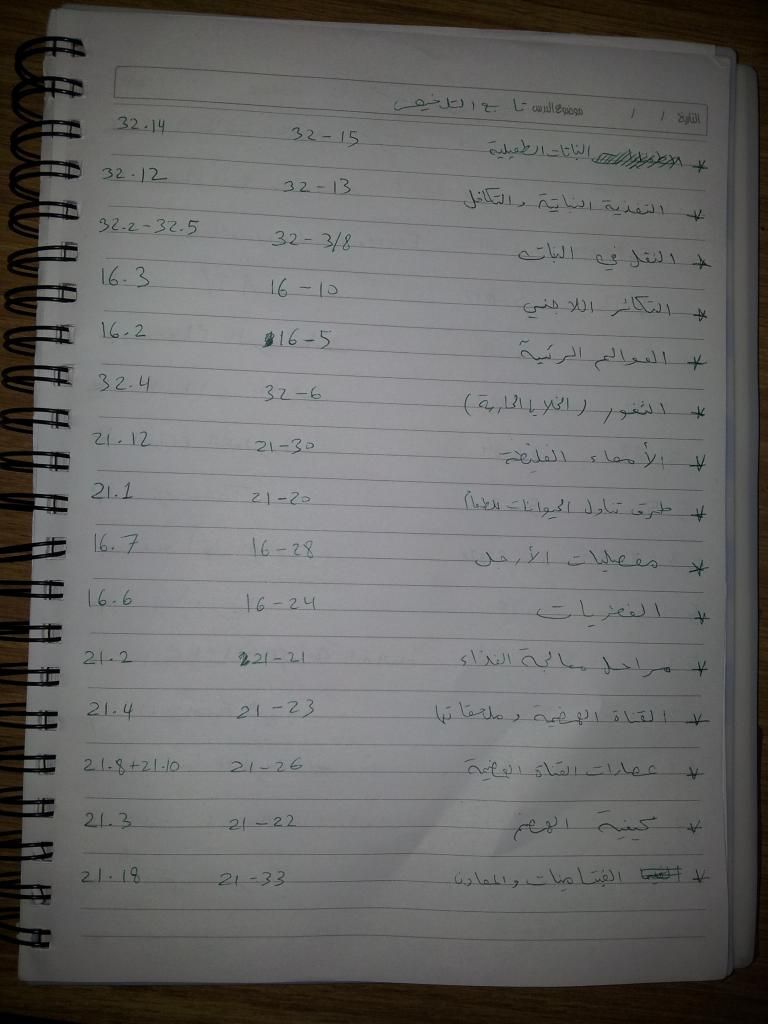 التاريخ / / موضوع الدرس تابع التلخيص
* النباتات الطفيلية 32-15 32.14
* التغذية النباتية والتكافل 32-13 32.12
* النقل في النبات 32-3/8 32.2-32.5
* التكاثر اللاجنسي 16-10 16.3
* العوالم الرئيسية 16-5 16.2
* الثغور (الخلايا الحارسة) 32-6 32.4
* الأمعاء الغليظة 21-30 21.12
* طرق تناول الحيوانات للطعام 21-20 21.1
* مفصليات الأرجل 16-28 16.7
* الفطريات 16-24 16.6
* مراحل معالجة الغذاء 21-21 21.2
* القناة الهضمية وملحقاتها 21-23 21.4
* عصارات القناة الهضمية 21-26 21.8+21.10
* كيفية الهضم 21-22 21.3
* الفيتامينات والمعادن 21-33 21.18